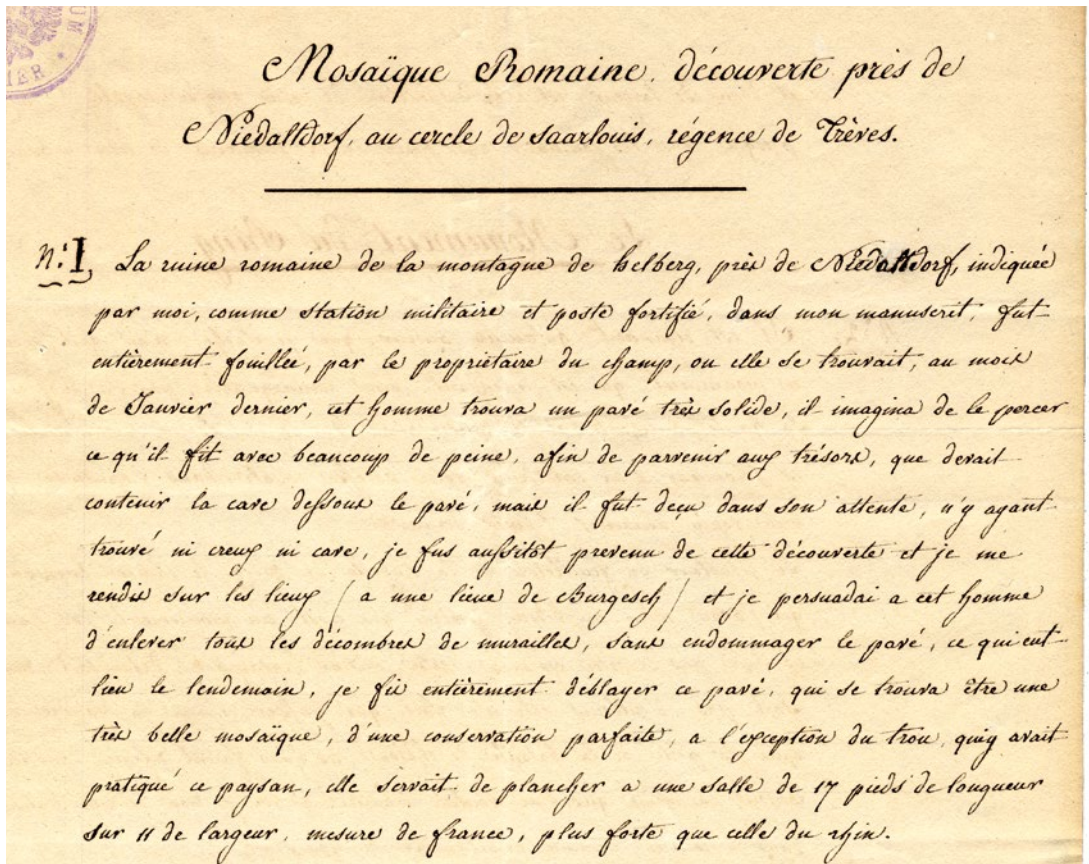 UM
IER *
Mosaïque Romaine. découverte près de
Niedaltdorf, au cercle de Saarlouis, régence de Trèves.
N:º I, La ruine romaine de la montagne de helberg, près de Niedaltdorf, indiquée
par moi, comme station militaire et poste fortifié, dans mon manuscrit, fut
entièrement fouillée, par le propriétaire du champ, ou elle se trouvait, au mois
de Janvier dernier, cet homme trouva un pavé très solide, il imagina de le percer
ce qu'il fit avec beaucoup de peine, afin de parvenir aux trésors, que devait
contenir la cave dessous le pavé, mais il fut deçu dans son attente, n'y ayant
trouvé ni creux ni cave, je fus aussitôt prevenu de cette découverte et je me
rendis sur les lieux / a une lieue de Burgesch / et je persuadai a cet homme
d'enlever tous les décombres de murailles, sans endommager le pavé, ce qui eut
lieu le lendemain, je fis entièrement déblayer ce pavé, qui se trouva être une
très belle mosaïque, d'une conservation parfaite, a l'exception du trou, qu'y avait
pratiqué ce paysan, elle servait de plancher a une salle de 17 pieds de longueur
sur 11 de largeur, mesure de france, plus forte que celle du rhin.